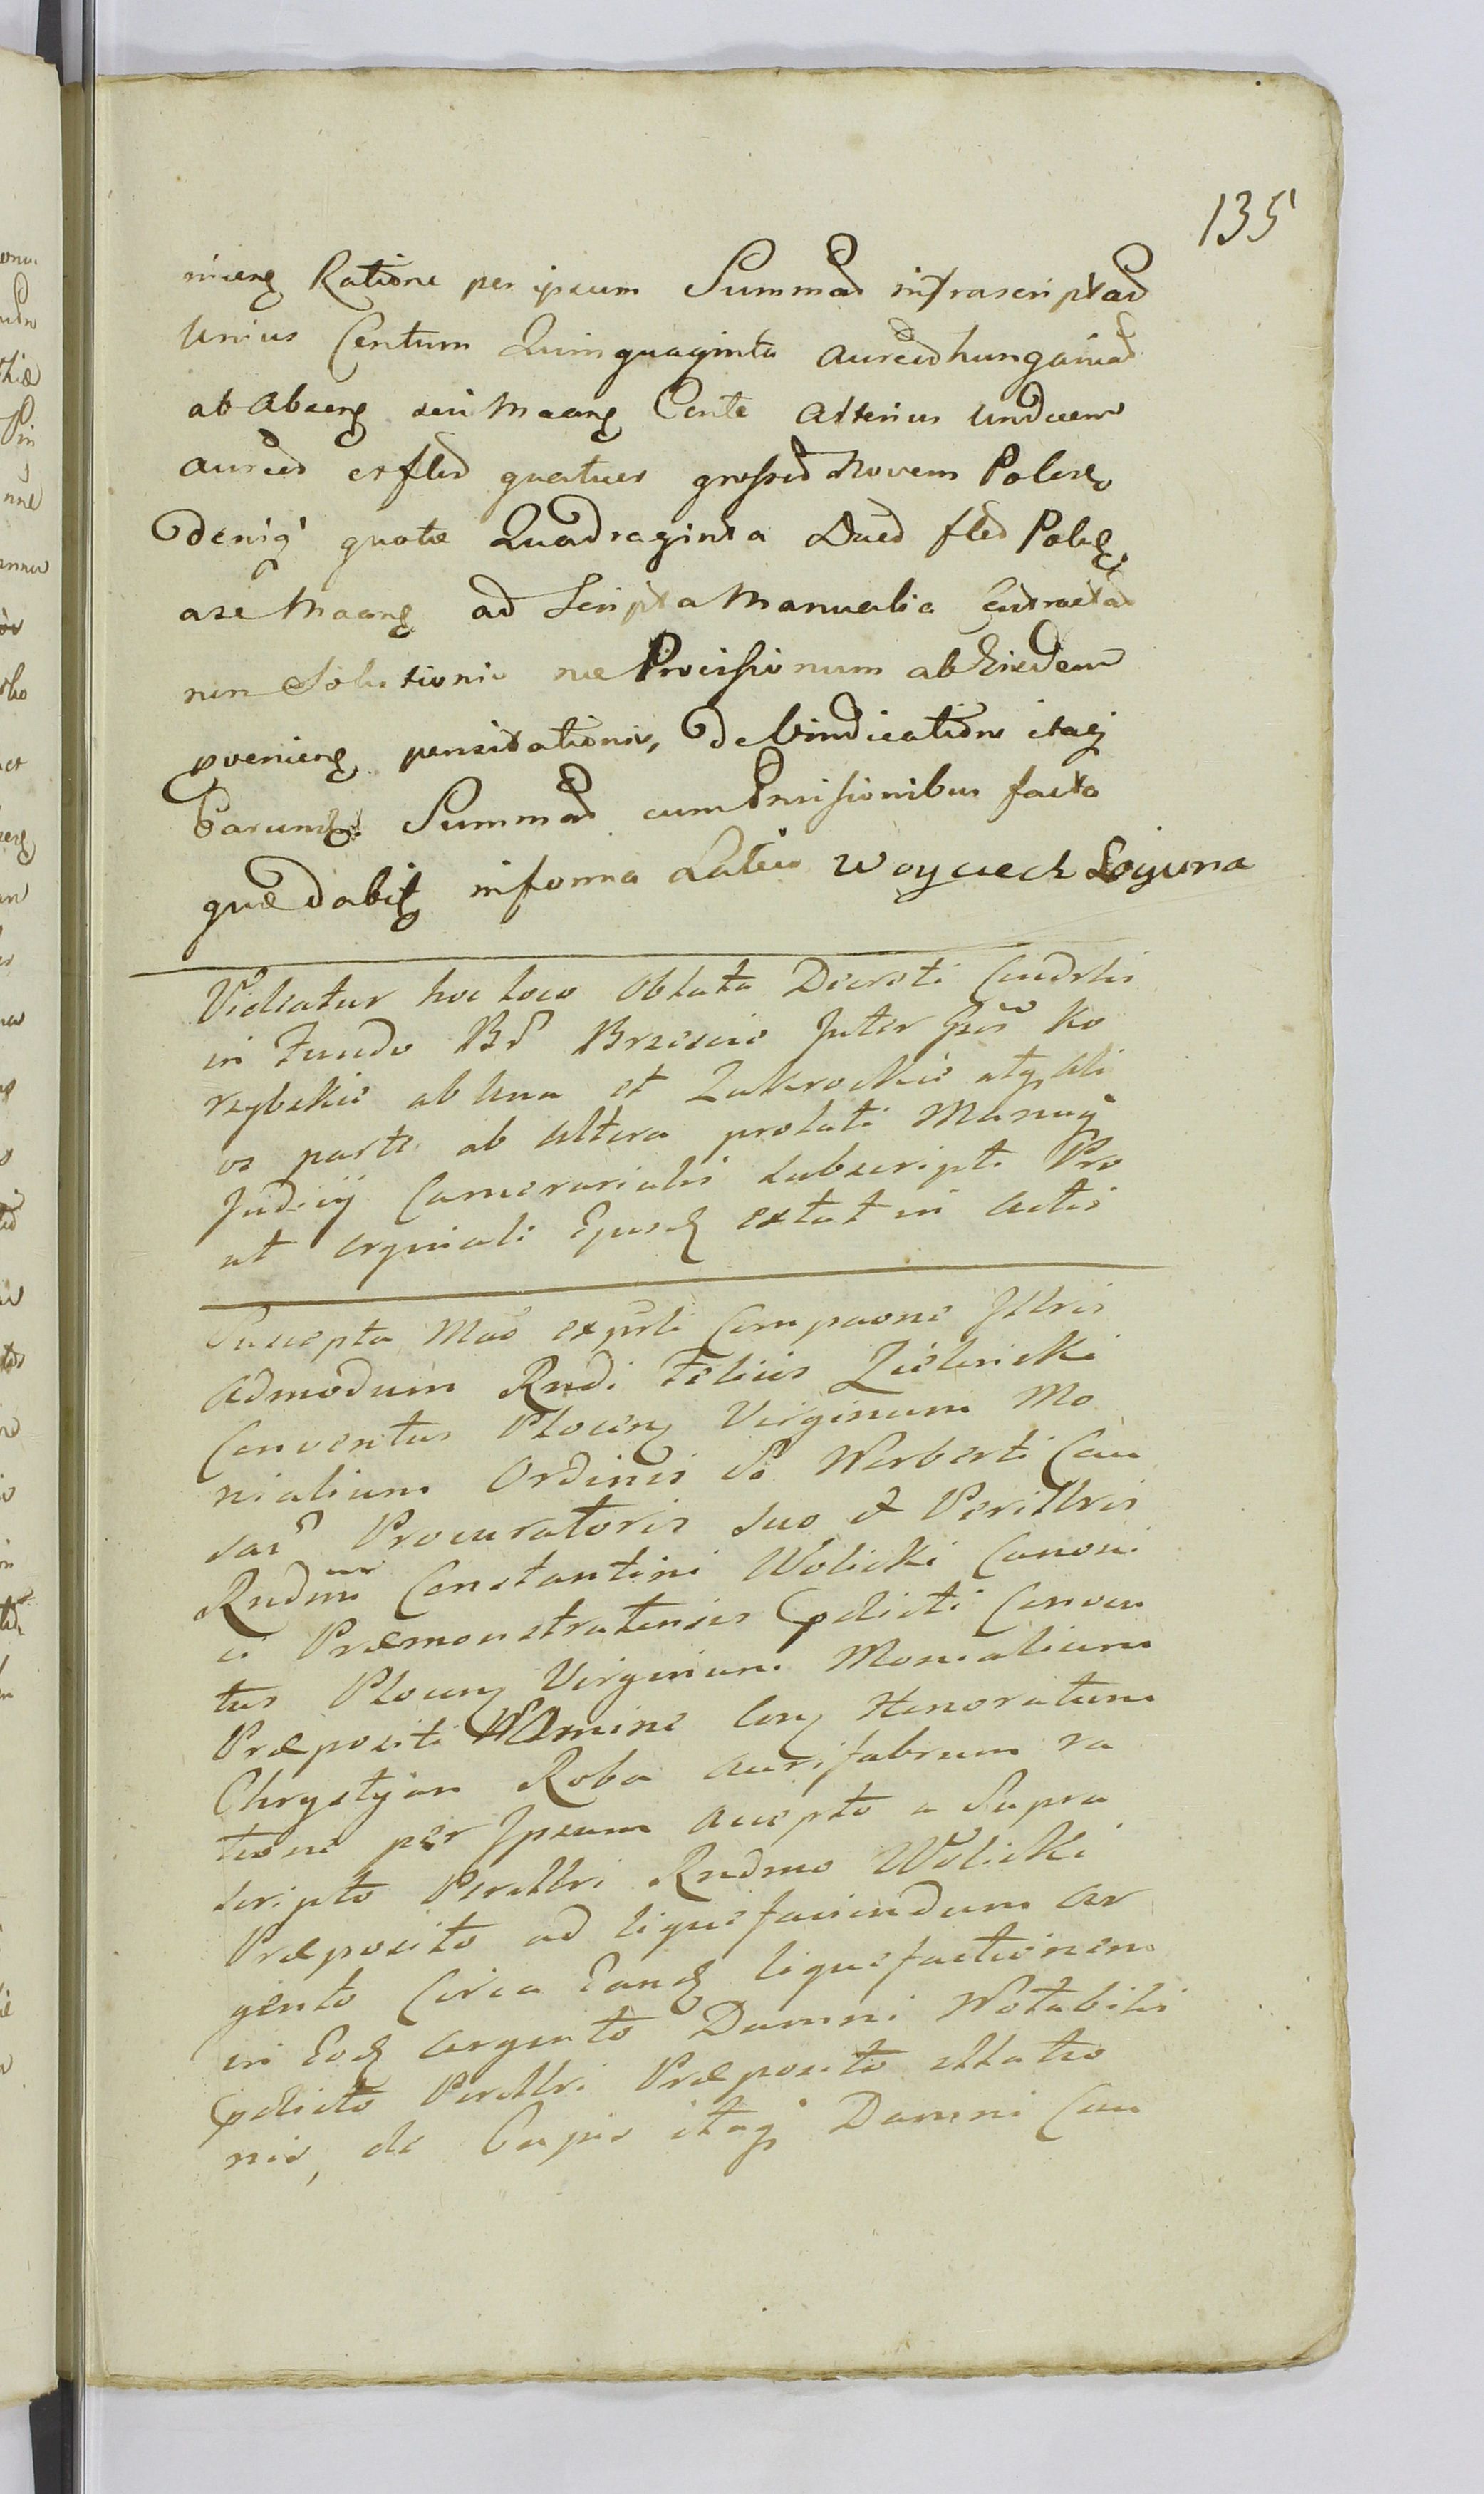 135
Ratione per ipsum Summas infrascriptas
Unius Centum Quinquaginta aureos hungaricas
ab seu Cente Alterius Undecem
aureos et flos quatuer grossos Novem Polon
deniq quote Quadraginta Duos flos Polon
a se ad Scripta Manualia Contractas
non Solutionis nec Provisionum ab Eisdem
provenien pensitationis, de Vindicatione itaq
Earund Summas cum Provisionibus facta
quae dabit in forma Latius Woyciech Loguna
Videatur hoc loco Oblata Decreti Condrlis
in Fundo Brzescie Inter Ko
rzybskie ab Una et Zakrockie atq Ali
os parte ab Altera prolati Manuq
Judicij Camerarialis Subscripti Pro
ut orginali Ejusd extat in Actis
Suscepta Mao Comparone Illris
Admodum Rndi Felicis Zielinski
Conventus Plocen Virginum Mo
nialium Ordinis S Norberti Cau
sar Procuratoris suo et Perillris
Rndmi Constantini Wolicki Canoni
ci Præmonstratensis pdicti Conven
tus Plocen Virginum Monialium
Præpositi Nomine Con Honoratum
Chrystyan Roba Aurifabrum ra
tione per Ipsum accepto a Supra
scripto Perillri Rndmo Wolicki
Præposito ad liquefaciendum Ar
gento Circa Eand liquefactionem
in Eod Argento Damni Notabilis
pdicto Perillri Præposito illatio
nis, de Cujus itaq Damni Cau